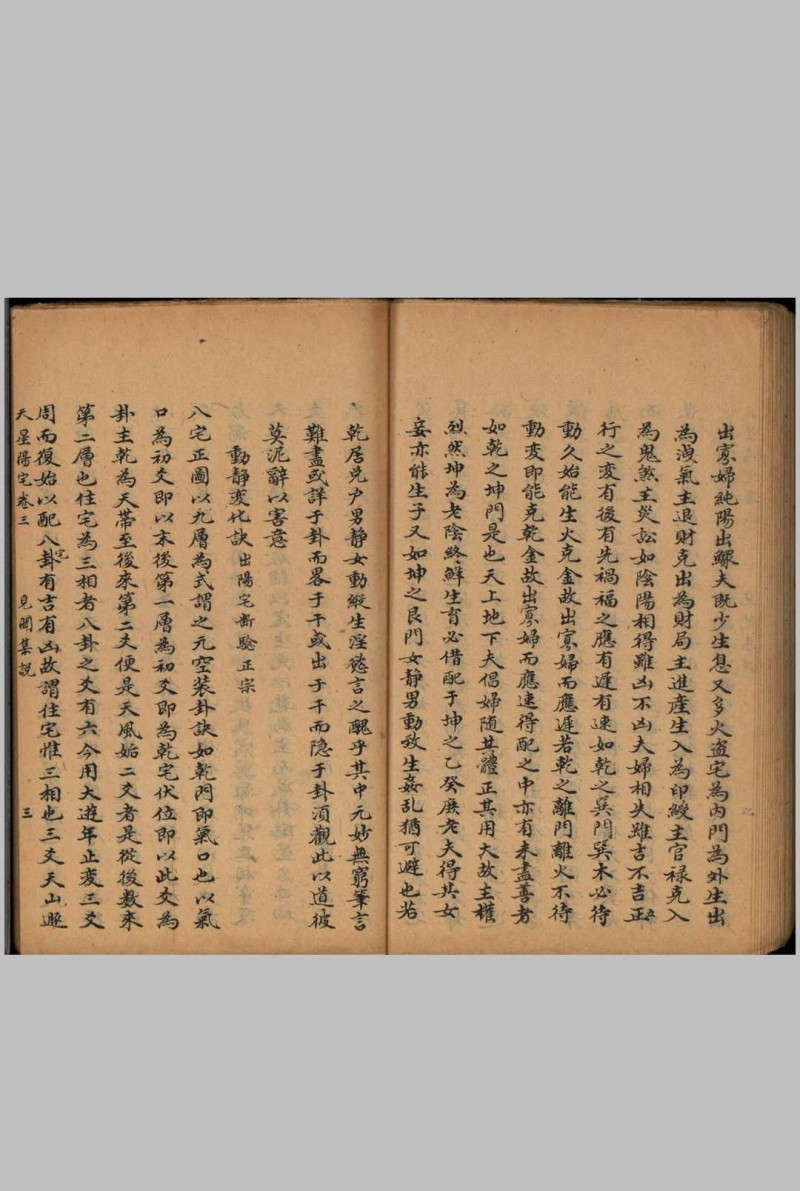 出寡婦純陽出鰥夫既少生息又多火盗宅為內門為外生出
為洩氣主退財克出為財局主進產生入為印綬主官禄克入
為鬼煞主災訟如陰陽相得雖凶不凶夫婦相失雖吉不吉正五
行之变有後有先禍福之應有遲有速如乾之巽門巽木必待
動久始能生火克金故出寡婦而應遲若乾之離門離火不待
動变即能克乾金故出寡婦而應速得配之中亦有未盡善者
如乾之坤門是也天上地下夫倡婦随其體正其用大故主權
烈然坤為老陰終鮮生育必借配于坤之乙癸庶老夫得其女
妾亦能生子又如坤之艮門女静男動致生姦乱猶可避也若
乾居兑户男静女動縱生淫慾言之醜乎其中元妙無窮筆言
難盡或詳于卦而畧于干或出于干而隐于卦須觀此以道彼
莫泥辭以害意
動静变化訣 出陽宅斷驗正宗
八宅正圖以九層為式謂之元空装卦訣如乾門即氣口也以氣
口為初爻即以末後第一層為初爻即為乾宅伏位即以此爻為
卦主乾為天帶至後來第二爻便是天風姤二爻者是從後数來
第二層也住宅為三相者八卦之爻有六今用大遊年止变三爻
周而復始以配八卦宅有吉有凶故謂住宅惟三相也三爻天山遯
天星陽宅卷三 見聞集説 三